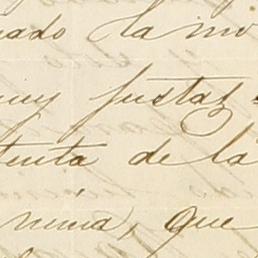 ado la mo
muy justas
tenta de la
niña, que